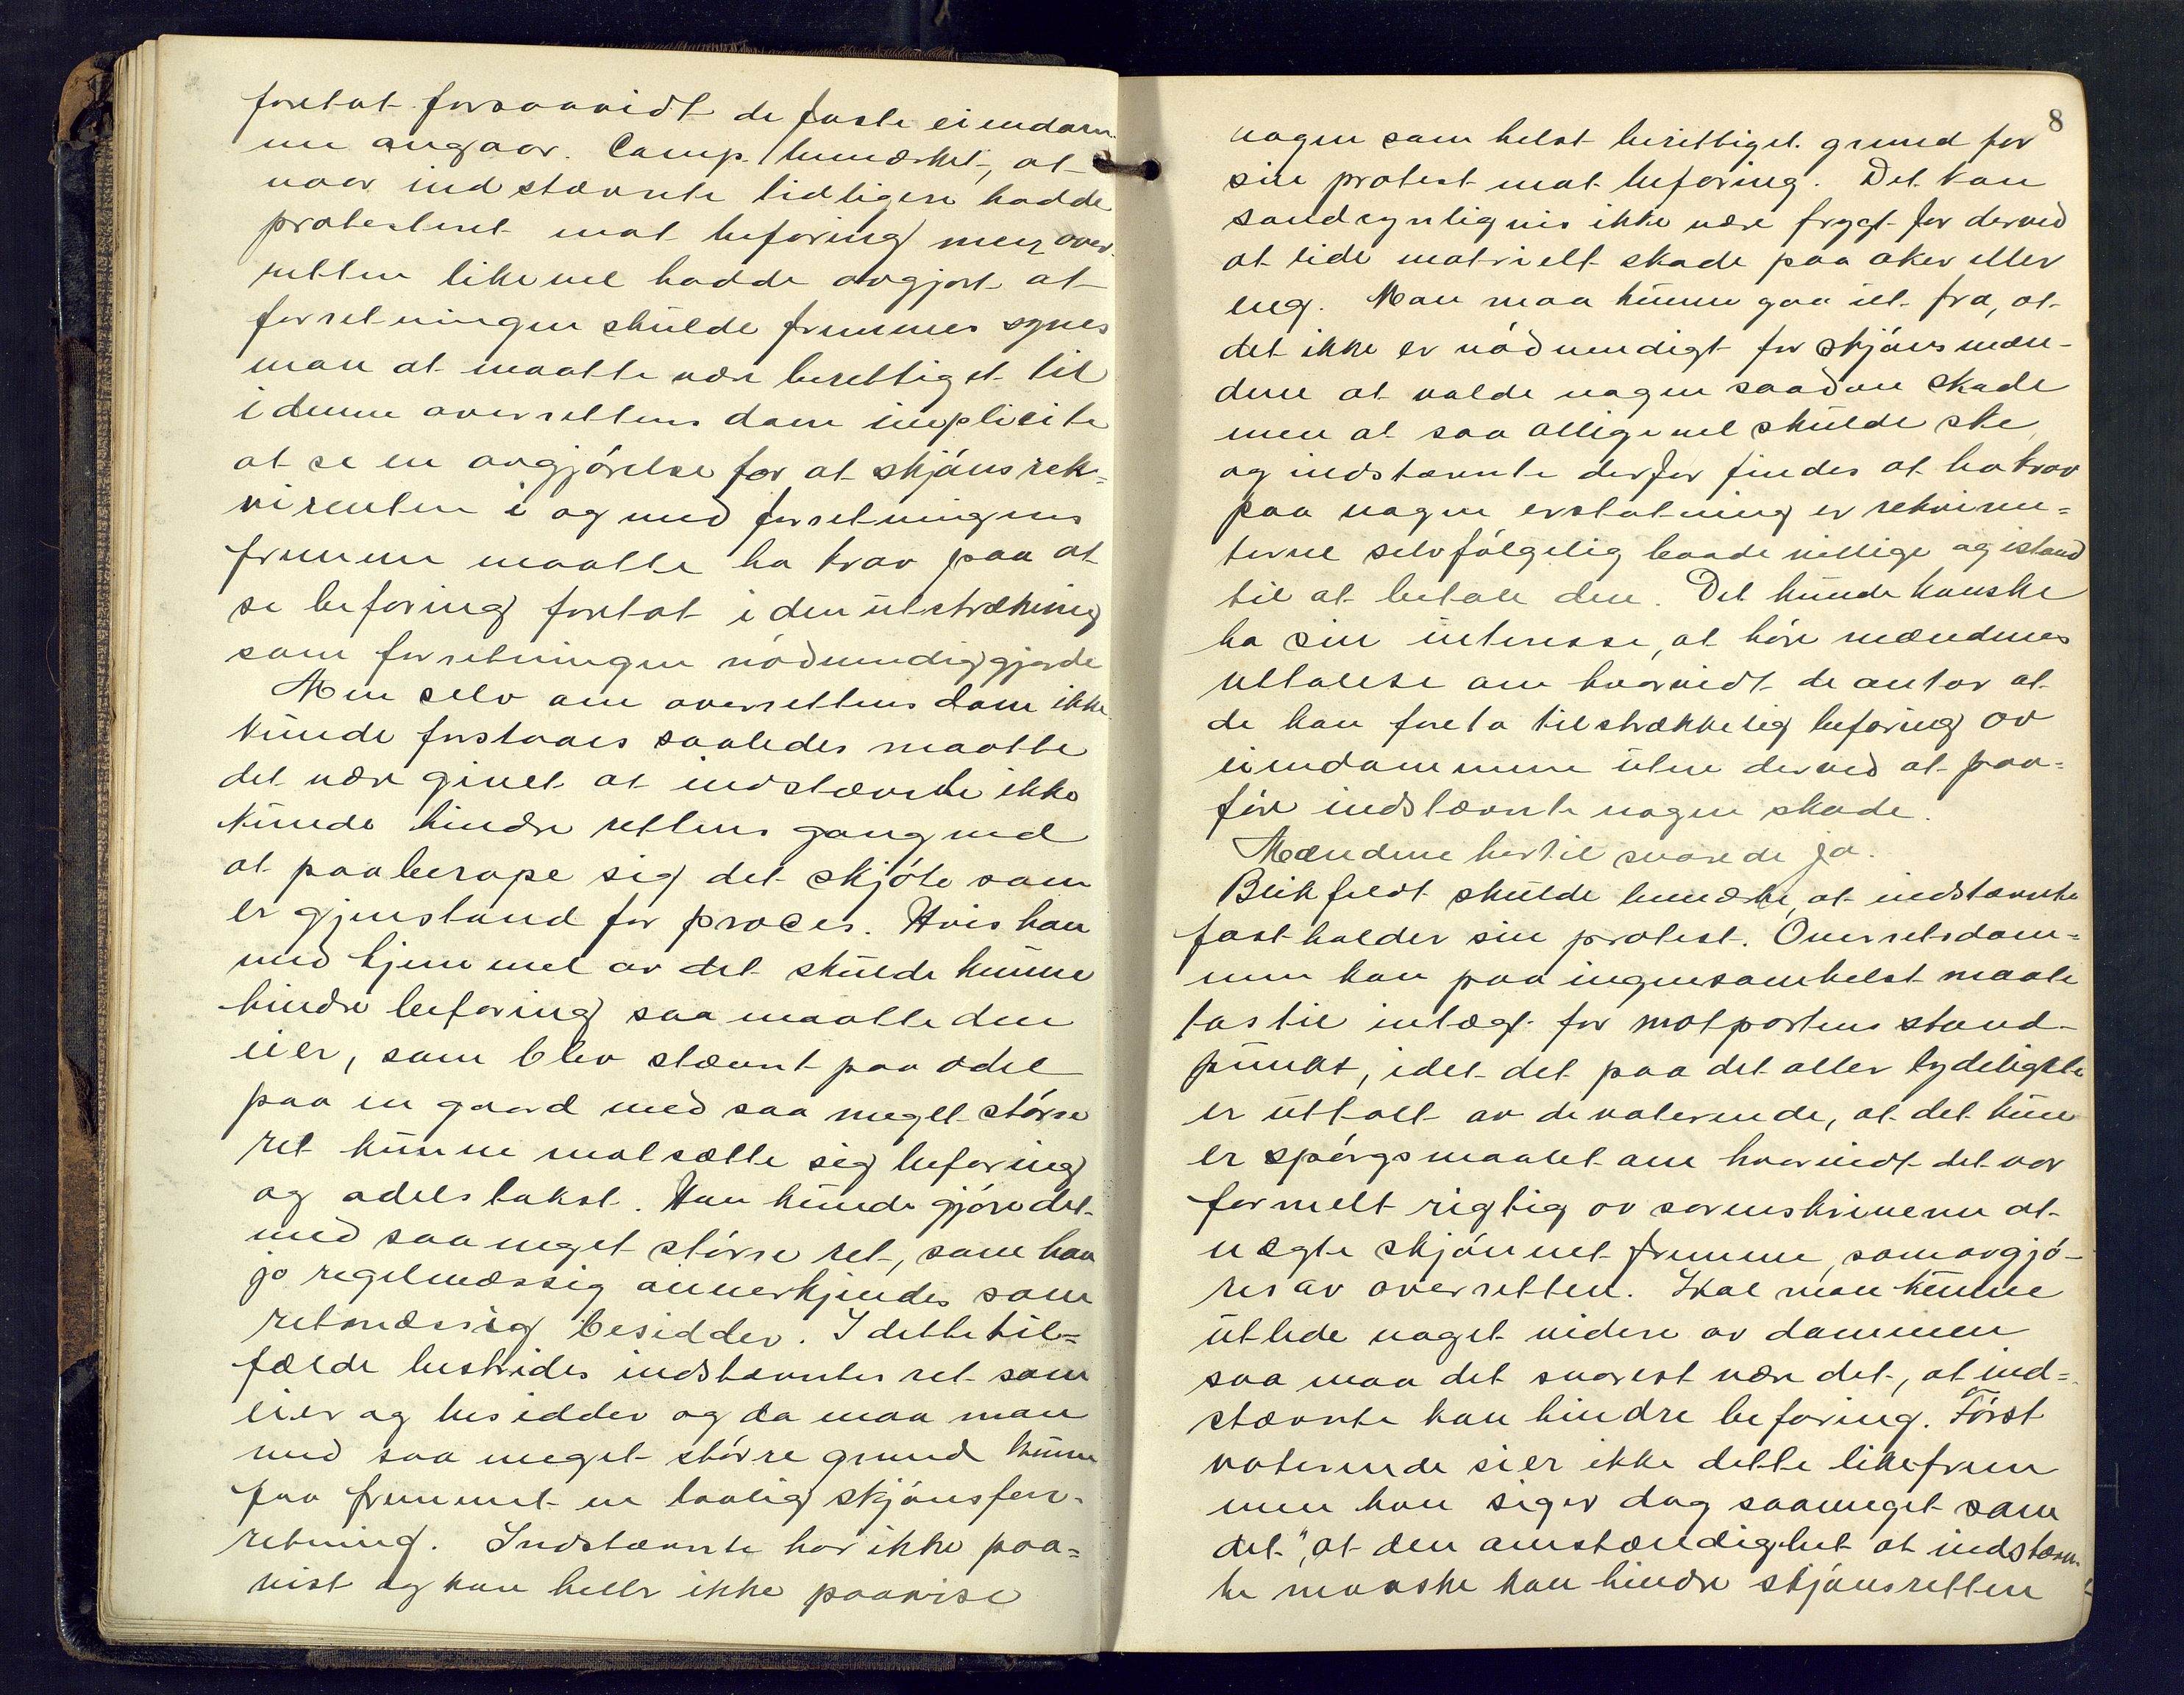 foretat forsaavidt de faste eiendom-
me angaar. Camp. bemærket, at
naar indstævnte tidligere hadde
protesteret mot befaring men over-
retten likevel hadde avgjort at
forretningen skulde fremmes synes
man at maatte være berettiget til
i denne overrettens dom implicite
at se en avgjörelse for at skjönsrek=
virenten i og med forretningens
fremme maatte ha krav paa at
se befaring foretat i den utstrækning
som forretningen nödvendiggjorde
Men selv om overrettens dom ikke
kunde forstaaes saaledes maatte
det være givet at indstævnte ikke
kunde hindre rettens gang ved
at paaberope sig det skjöte som
er gjenstand for proces. Hvis han
med hjemmel av det skulde kunne
hindre befaring saa maatte den
eier, som blev stævnt paa odel
paa en gaard med saa meget större
ret kunne motsætte sig befaring
og odelstakst. Han kunde gjöre det
med saa meget större ret, som han
jo regelmæssig annerkjendes som
retmæssig besidder. I dette til=
fælde bestrides indstævntes ret som
eier og besidder og da maa man
med saa meget större grund kunne
faa fremmet en lovlig skjönsfor-
retning. Indstævnte har ikke paa=
vist og kan heller ikke paavise
8
nogen som helst berettiget grund for
sin protest mot befaring. Det kan
sandsynligvis ikke være frygt for derved
at lide matrielt skade paa aker eller
eng. Man maa kunne gaa ut fra, at
det ikke er nödvendigt for skjönsmæn-
dene at volde nogen saadan skade
men at saa alligevel skulde ske,
og indstævnte derfor findes at ha krav
paa nogen erstatning er rekviren=
terne selvfölgelig baade villige og istand
til at betale den. Det kunde kanske
ha sin interesse, at höre mændenes
uttalelse om hvorvidt de antar at
de kan foreta tilstrækkelig befaring av
eiendommene uten derved at paa=
före indstævnte nogen skade.
Mændene hertil svarede ja.
Blikfeldt skulde bemærke, at indstævnte
fastholder sin protest. Overretsdom=
men kan paa ingensomhelst maate
tas til intægt for motpartens stand-
punkt, idet det paa det aller tydeligste
er uttalt av de voterende, at det kun
er spörgsmaalet om hvorvidt det var
formelt rigtig av sorenskriveren at
nægte skjönnet fremme, som avgjö-
res av overretten. Skal man kunne
utlede noget videre av dommen
saa maa det snarest være det, at ind=
stævnte kan hindre befaring. Först
voterende sier ikke dette likefrem
men han siger dog saameget som
det, "at den omstændighet at indstævn-
te maaske kan hindre skjönsretten